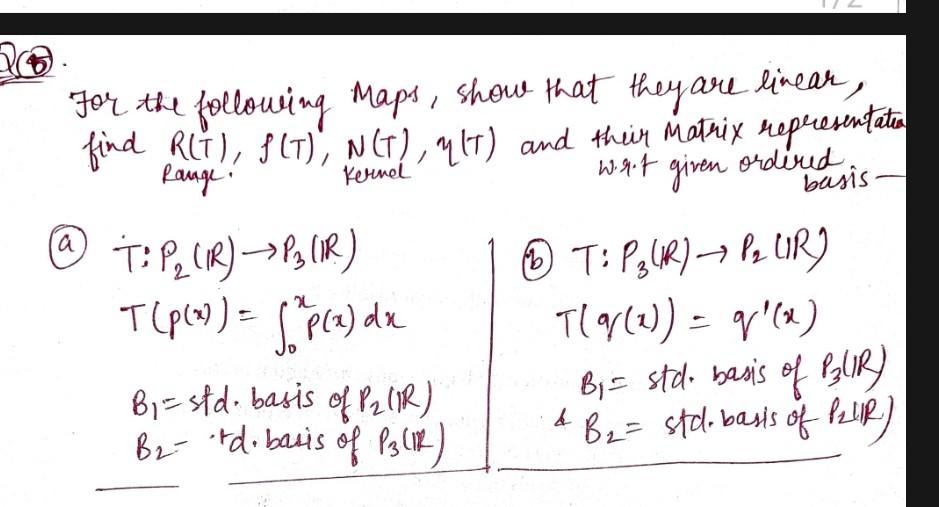 Q(b).
For the following Maps, show that they are linear,
find R(T), ρ(T), N(T), η(T) and their Matrix representation
Range. Kernel w.r.t given ordered
basis —
(a) T: P₂(IR) → P₃(IR)
T(p(x)) = ∫₀ˣ p(x) dx
B₁ = std. basis of P₂(IR)
B₂ = td. basis of P₃(IR)
(b) T: P₃(IR) → P₂(IR)
T(q(x)) = q'(x)
B₁ = std. basis of P₃(IR)
& B₂ = std. basis of P₂(IR)